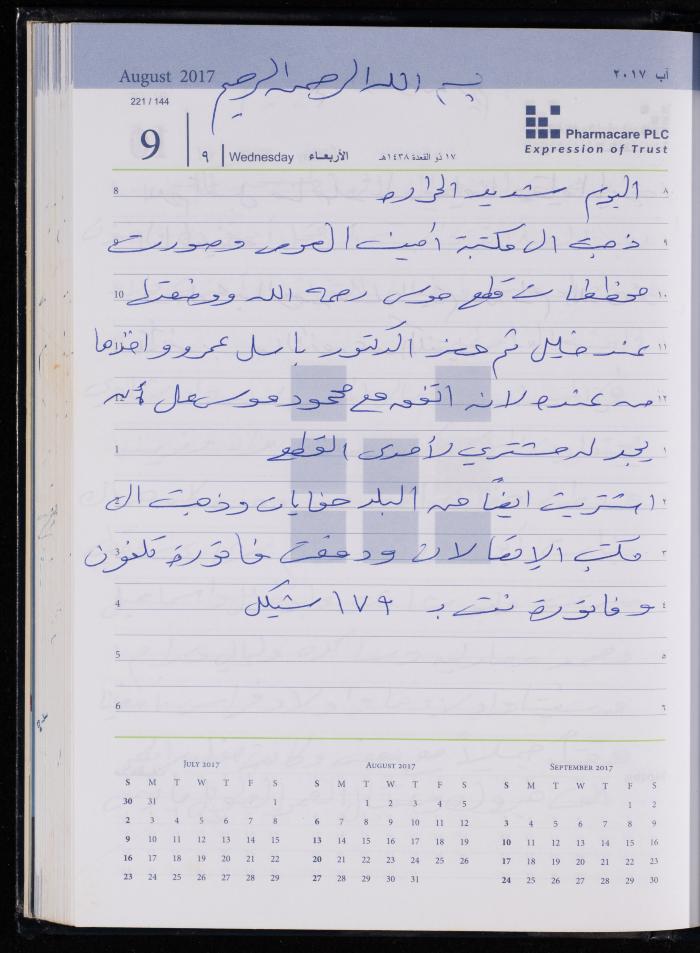 August 2017
بسم الله الرحمن الرحيم
آب ٢٠١٧
221 / 144
9
٩
Wednesday
الأربعاء
١٧ ذو القعدة ١٤٣٨هـ
Pharmacare PLC
Expression of Trust
8 اليوم شديد الحراره ٨
9 ذهبت الى مكتبة امين وصورت ٩
10 مخططات قطع موسى رحمه الله ووضعتها ١٠
11 عند خليل ثم حضر الدكتور باسل عمرو واخذها ١١
12 من عنده لانه اتفق مع محمود موسى على أنه ١٢
1 يجد له مشتري لأحدى القطع ١
2 اشتريت ايضاً من البلد حفايات وذهبت الى ٢
3 مكتب الإتصالات ودفعت فاتورة تلفون ٣
4 وفاتورة نت بـ ١٧٩ شيكل ٤
5 ٥
6 ٦
July 2017
S M T W T F S
30 31 1
2 3 4 5 6 7 8
9 10 11 12 13 14 15
16 17 18 19 20 21 22
23 24 25 26 27 28 29
August 2017
S M T W T F S
1 2 3 4 5
6 7 8 9 10 11 12
13 14 15 16 17 18 19
20 21 22 23 24 25 26
27 28 29 30 31
September 2017
S M T W T F S
1 2
3 4 5 6 7 8 9
10 11 12 13 14 15 16
17 18 19 20 21 22 23
24 25 26 27 28 29 30